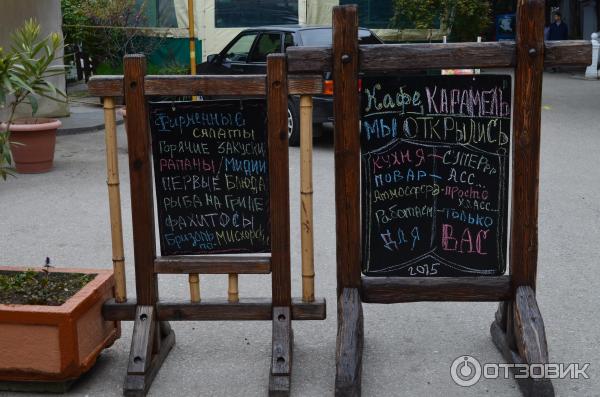 Фирменные
салаты
Горячие закуски
рапаны / мидии
первые блюда
рыба на гриле
фахитосы
Бризоль по-мисхорск.
Кафе „КАРАМЕЛЬ"
МЫ ОТКРЫЛИСЬ
кухня – супер
повар – АСС
Атмосфера – просто
класс
Работаем – только
для ВАС
2015
ОТЗОВИК